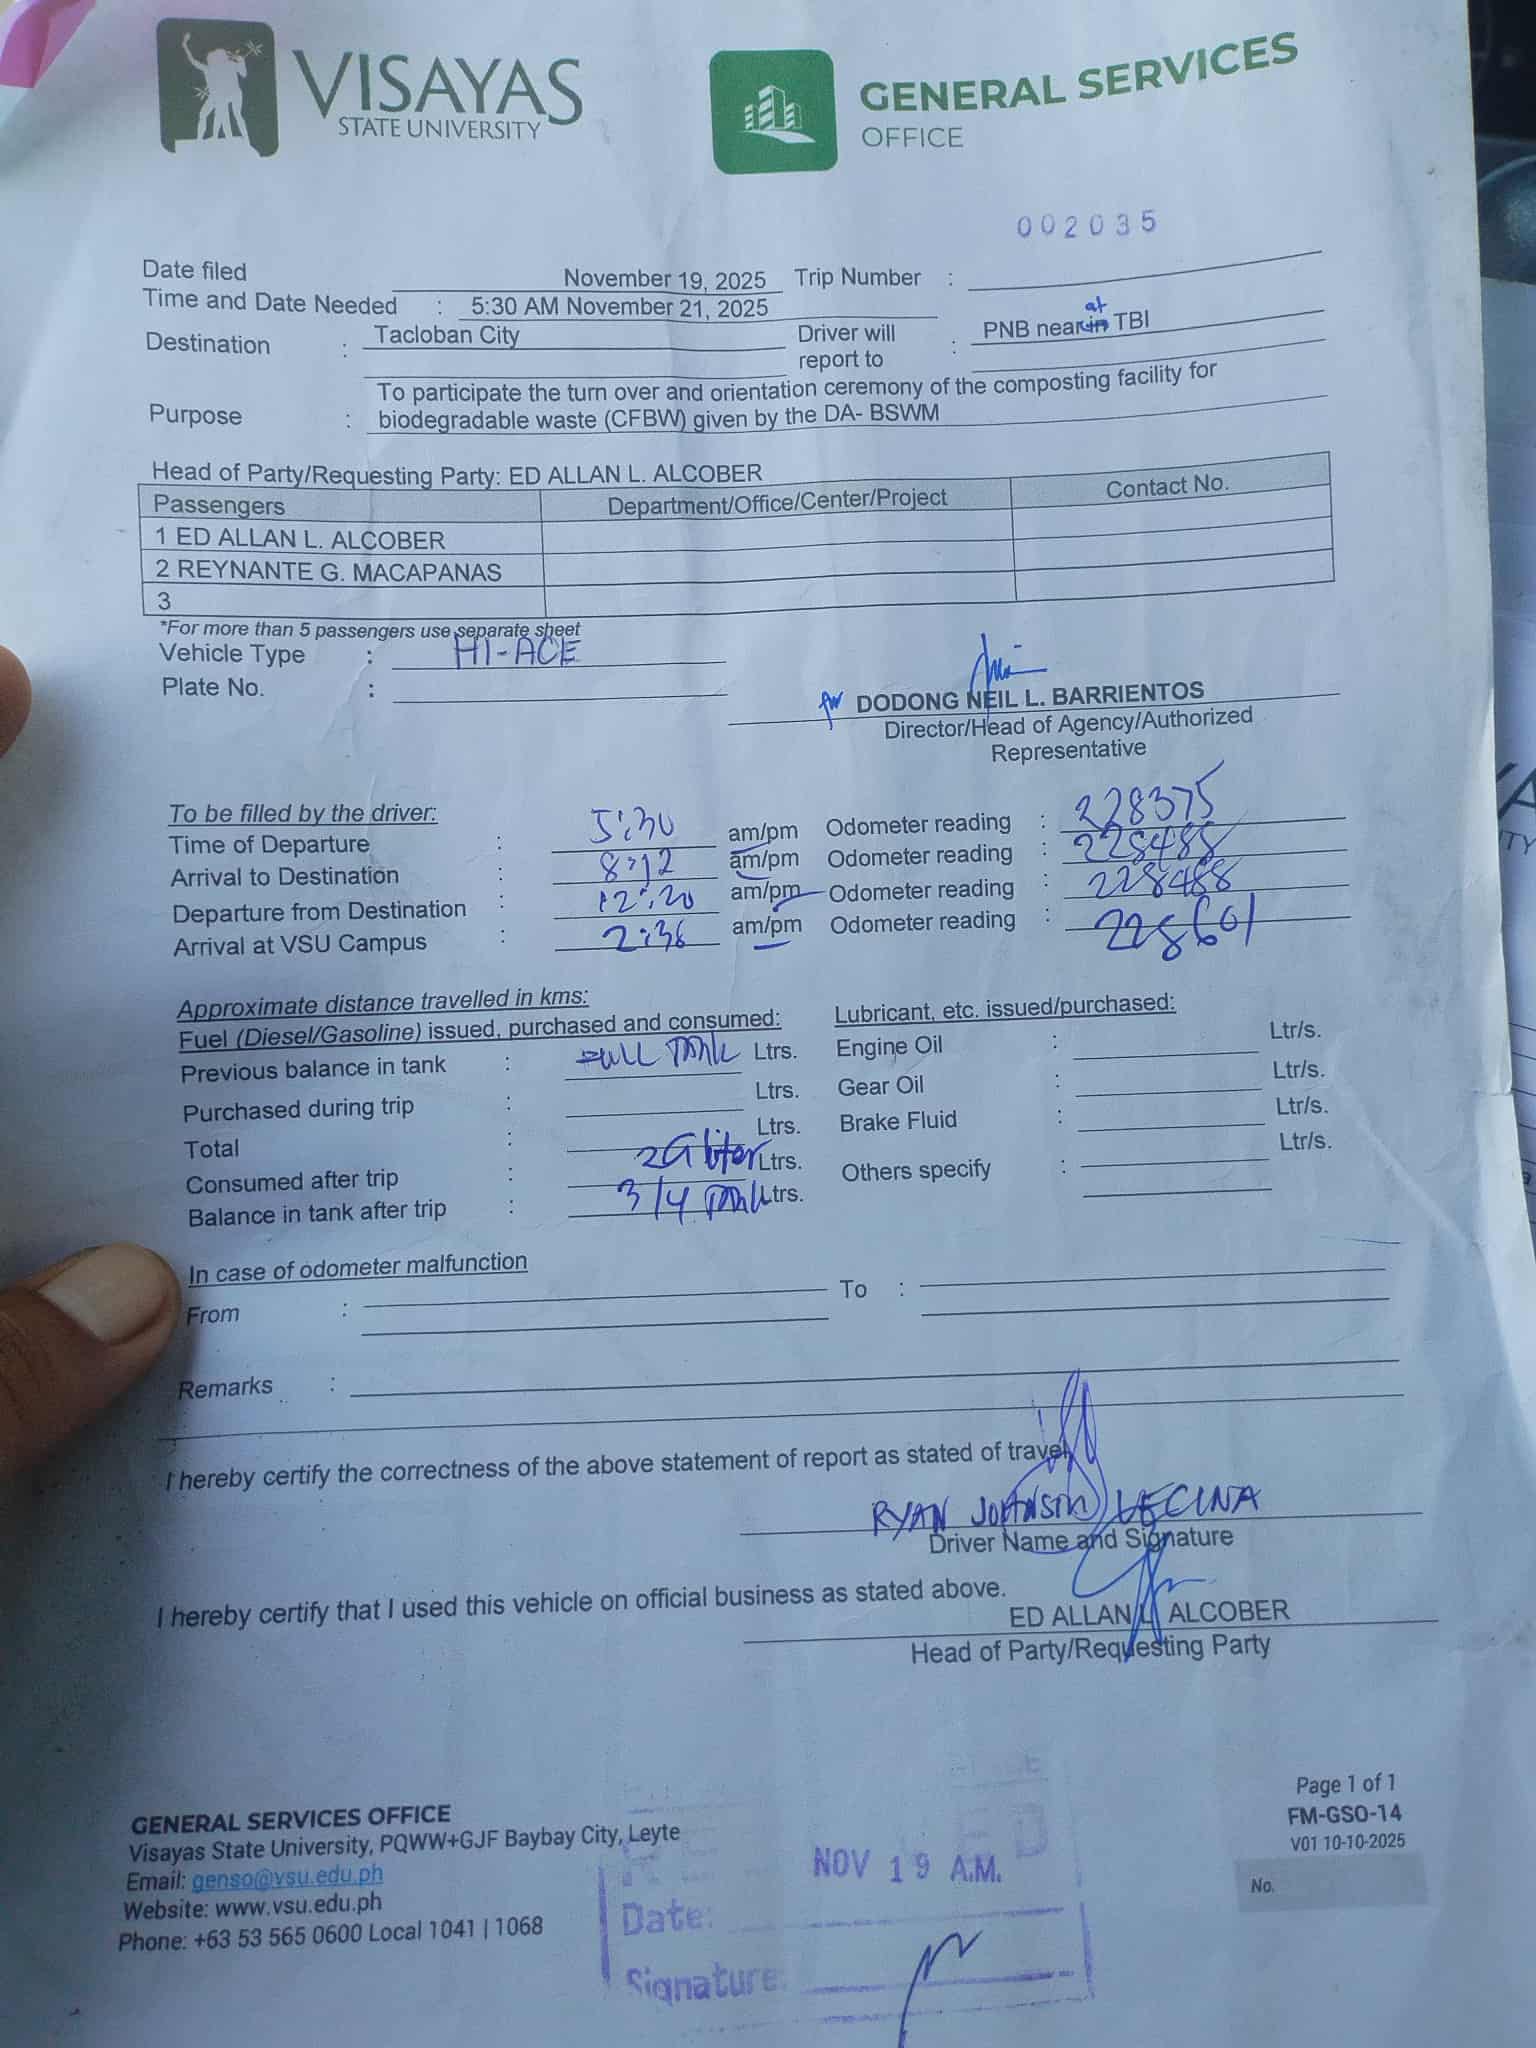 VISAYAS
STATE UNIVERSITY
GENERAL SERVICES
OFFICE
002035
Date filed November 19, 2025 Trip Number :
Time and Date Needed : 5:30 AM November 21, 2025
Destination : Tacloban City Driver will report to : PNB near at TBI
Purpose : To participate the turn over and orientation ceremony of the composting facility for
biodegradable waste (CFBW) given by the DA- BSWM
Head of Party/Requesting Party: ED ALLAN L. ALCOBER
Passengers Department/Office/Center/Project Contact No.
1 ED ALLAN L. ALCOBER
2 REYNANTE G. MACAPANAS
3
*For more than 5 passengers use separate sheet
Vehicle Type : HI-ACE
Plate No. :
for DODONG NEIL L. BARRIENTOS
Director/Head of Agency/Authorized
Representative
To be filled by the driver:
Time of Departure : 5:30 am/pm Odometer reading : 228375
Arrival to Destination : 8:12 am/pm Odometer reading : 228488
Departure from Destination : 12:20 am/pm Odometer reading : 228488
Arrival at VSU Campus : 2:36 am/pm Odometer reading : 228601
Approximate distance travelled in kms:
Fuel (Diesel/Gasoline) issued, purchased and consumed: Lubricant, etc. issued/purchased:
Previous balance in tank : FULL TANK Ltrs. Engine Oil : Ltr/s.
Purchased during trip : Ltrs. Gear Oil : Ltr/s.
Total : Ltrs. Brake Fluid : Ltr/s.
Consumed after trip : liter Ltrs. Others specify : Ltr/s.
Balance in tank after trip : 3/4 TANK Ltrs.
In case of odometer malfunction
From : To :
Remarks :
I hereby certify the correctness of the above statement of report as stated of travel
RYAN JOHNSON LECINA
Driver Name and Signature
I hereby certify that I used this vehicle on official business as stated above.
ED ALLAN L. ALCOBER
Head of Party/Requesting Party
GENERAL SERVICES OFFICE
Visayas State University, PQWW+GJF Baybay City, Leyte
Email: genso@vsu.edu.ph
Website: www.vsu.edu.ph
Phone: +63 53 565 0600 Local 1041 | 1068
NOV 19 A.M.
Date:
Signature:
Page 1 of 1
FM-GSO-14
V01 10-10-2025
No.